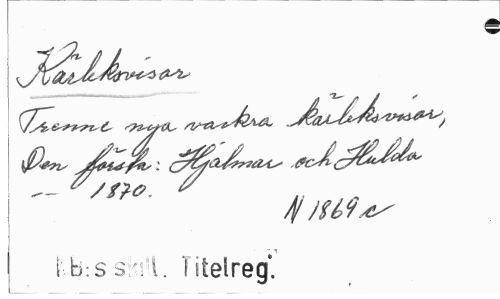 Kärleksvisor
Trenne nya vackra kärleksvisor,
Den första: Hjalmar och Hulda
-- 1870.
N 1869 c
KB:s skill. Titelreg.